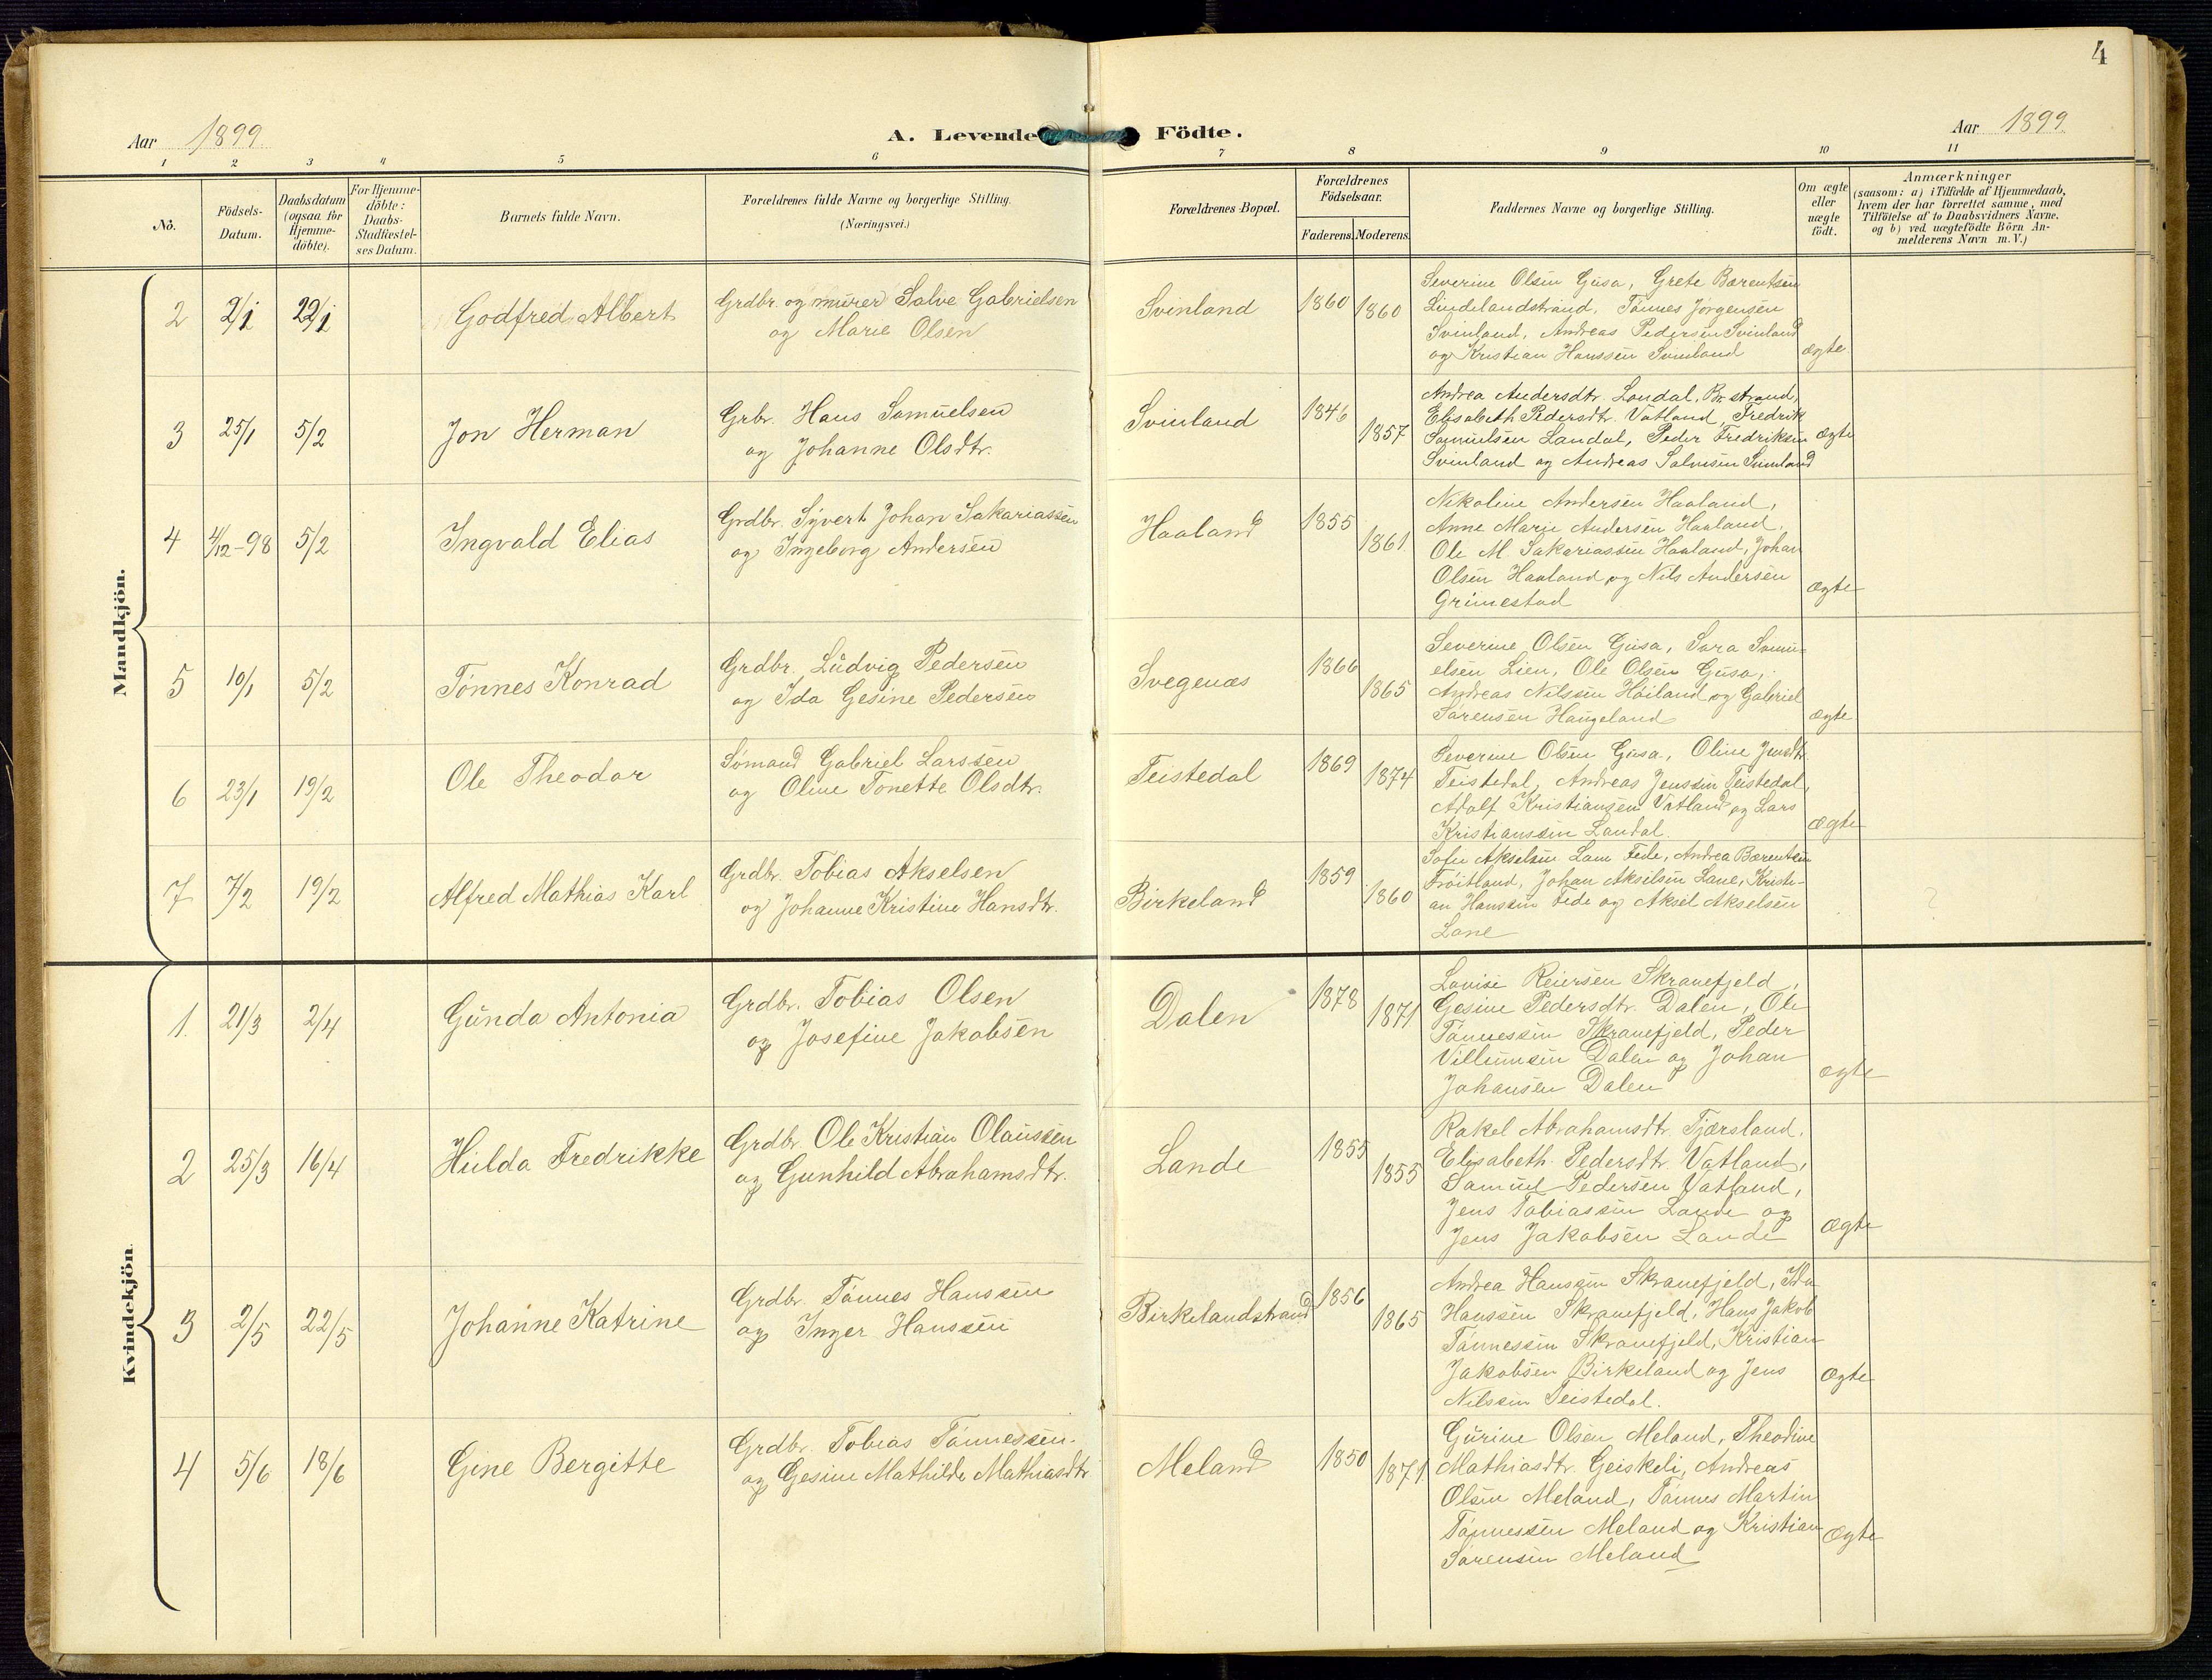 4
Aar 1899
A. Levende Födte.
Aar 1899
1 2 3 4 5 6 7 8 9 10 11
No.
Födsels-Datum.
Daabsdatum (ogsaa for Hjemme-döbte).
For Hjemme-döbte: Daabs-Stadfæstel-ses Datum.
Barnets fulde Navn.
Forældrenes fulde Navne og borgerlige Stilling.
(Næringsvei.)
Forældrenes Bopæl.
Forældrenes Födselsaar.
Faderens. Moderens.
Faddernes Navne og borgerlige Stilling.
Om ægte eller uægte födt.
Anmærkninger
(saasom: a) i Tilfælde af Hjemmedaab,
hvem der har forrettet samme, med
Tilföielse af to Daabsvidners Navne.
og b) ved uægtefödte Börn An-
melderens Navn m.V.)
Mandkjön.
2 2/1 22/1 Godfred Albert
Grdbr. og murer Salve Gabrielsen
og Marie Olsen
Svinland 1860 1860
Severine Olsen Gusa, Grete Bærentsen
Lindelandstrand, Tønnes Jørgensen
Svinland, Andreas Pedersen Svinland
og Kristian Hanssen Svinland ægte
3 25/1 5/2 Jon Herman
Grbr. Hans Samuelsen
og Johanne Olsdtr.
Svinland 1846 1857
Andrea Andersdtr. Landal, Br. strand,
Elisabeth Pedersdtr. Vatland, Fredrik
Samuelsen Landal, Peder Fredriksen ægte
Svinland og Andreas Salvesen Svinland
4 4/12-98 5/2 Ingvald Elias
Grdbr. Syvert Johan Sakariassen
og Ingeborg Andersen
Haaland 1855 1861
Nikoline Andersen Haaland,
Anne Marie Andersen Haaland,
Ole M. Sakariassen Haaland, Johan
Olsen Haaland og Nils Andersen
Grimestad ægte
5 10/1 5/2 Tønnes Konrad
Grdbr. Ludvig Pedersen
og Ida Gesine Pedersen
Svegenæs 1866 1865
Severine Olsen Gusa, Sara Samu-
elsen Lien, Ole Olsen Gusa,
Andreas Nilssen Høiland og Gabriel
Sørensen Haugeland ægte
6 23/1 19/2 Ole Theodor
Sømand Gabriel Larssen
og Oline Tonette Olsdtr.
Teistedal 1869 1874
Severine Olsen Gusa, Oline Jensdtr.
Teistedal, Andreas Jenssen Teistedal,
Adolf Kristiansen Vatland og Lars
Kristianssen Landal. ægte
7 7/2 19/2 Alfred Mathias Karl
Grdbr. Tobias Akselsen
og Johanne Kristine Hansdtr.
Birkeland 1859 1860
Sofie Akselsen Fede, Andrea Bærentsen
Frøitland, Johan Akselsen Lane, Kristi-
an Hanssen Fede og Aksel Akselsen
Lane
?
Kvindekjön.
1. 21/3 2/4 Gunda Antonia
Grdbr. Tobias Olsen
og Josefine Jakobsen
Dalen 1878 1871
Lovise Reiersen Skranefjeld,
Gesine Pedersdtr. Dalen, Ole
Tønnessen Skranefjeld, Peder
Villumsen Dalen og Johan
Johansen Dalen ægte
2 25/3 16/4 Hilda Fredrikke
Grdbr. Ole Kristian Olaussen
og Gunhild Abrahamsdtr.
Lande 1855 1855
Rakel Abrahamsdtr. Tjærsland,
Elisabeth Pedersdtr. Vatland,
Samuel Pedersen Vatland,
Jens Tobiassen Lande og
Jens Jakobsen Lande ægte
3 2/5 22/5 Johanne Katrine
Grdbr. Tønnes Hanssen
og Inger Hanssen
Birkelandstrand 1856 1865
Andrea Hanssen Skranefjeld, Ida
Hanssen Skranefjeld, Hans Jakob
Tønnessen Skranefjeld, Kristian
Jakobsen Birkeland og Jens
Nilssen Teistedal. ægte
4 5/6 18/6 Gine Bergitte
Grdbr. Tobias Tønnessen
og Gesine Mathilde Mathiasdtr
Meland 1850 1871
Gurine Olsen Meland, Theodine
Mathiasdtr. Geiskeli, Andreas
Olsen Meland, Tønnes Martin
Tønnessen Meland og Kristian
Sørensen Meland ægte